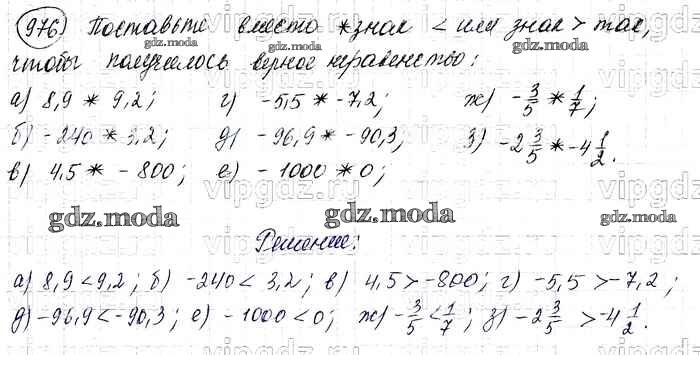 976) Поставьте вместо * знак < или знак > так,
чтобы получилось верное неравенство:
а) 8,9 * 9,2; г) -5,5 * -7,2; ж) -3/5 * 1/7;
б) -240 * 3,2; д) -96,9 * -90,3; з) -2 3/5 * -4 1/2.
в) 4,5 * -800; е) -1000 * 0;
Решение:
а) 8,9 < 9,2; б) -240 < 3,2; в) 4,5 > -800; г) -5,5 > -7,2;
д) -96,9 < -90,3; е) -1000 < 0; ж) -3/5 < 1/7; з) -2 3/5 > -4 1/2.
gdz.moda
gdz.moda
gdz.moda
gdz.moda
gdz.moda
gdz.moda
vipgdz.ru